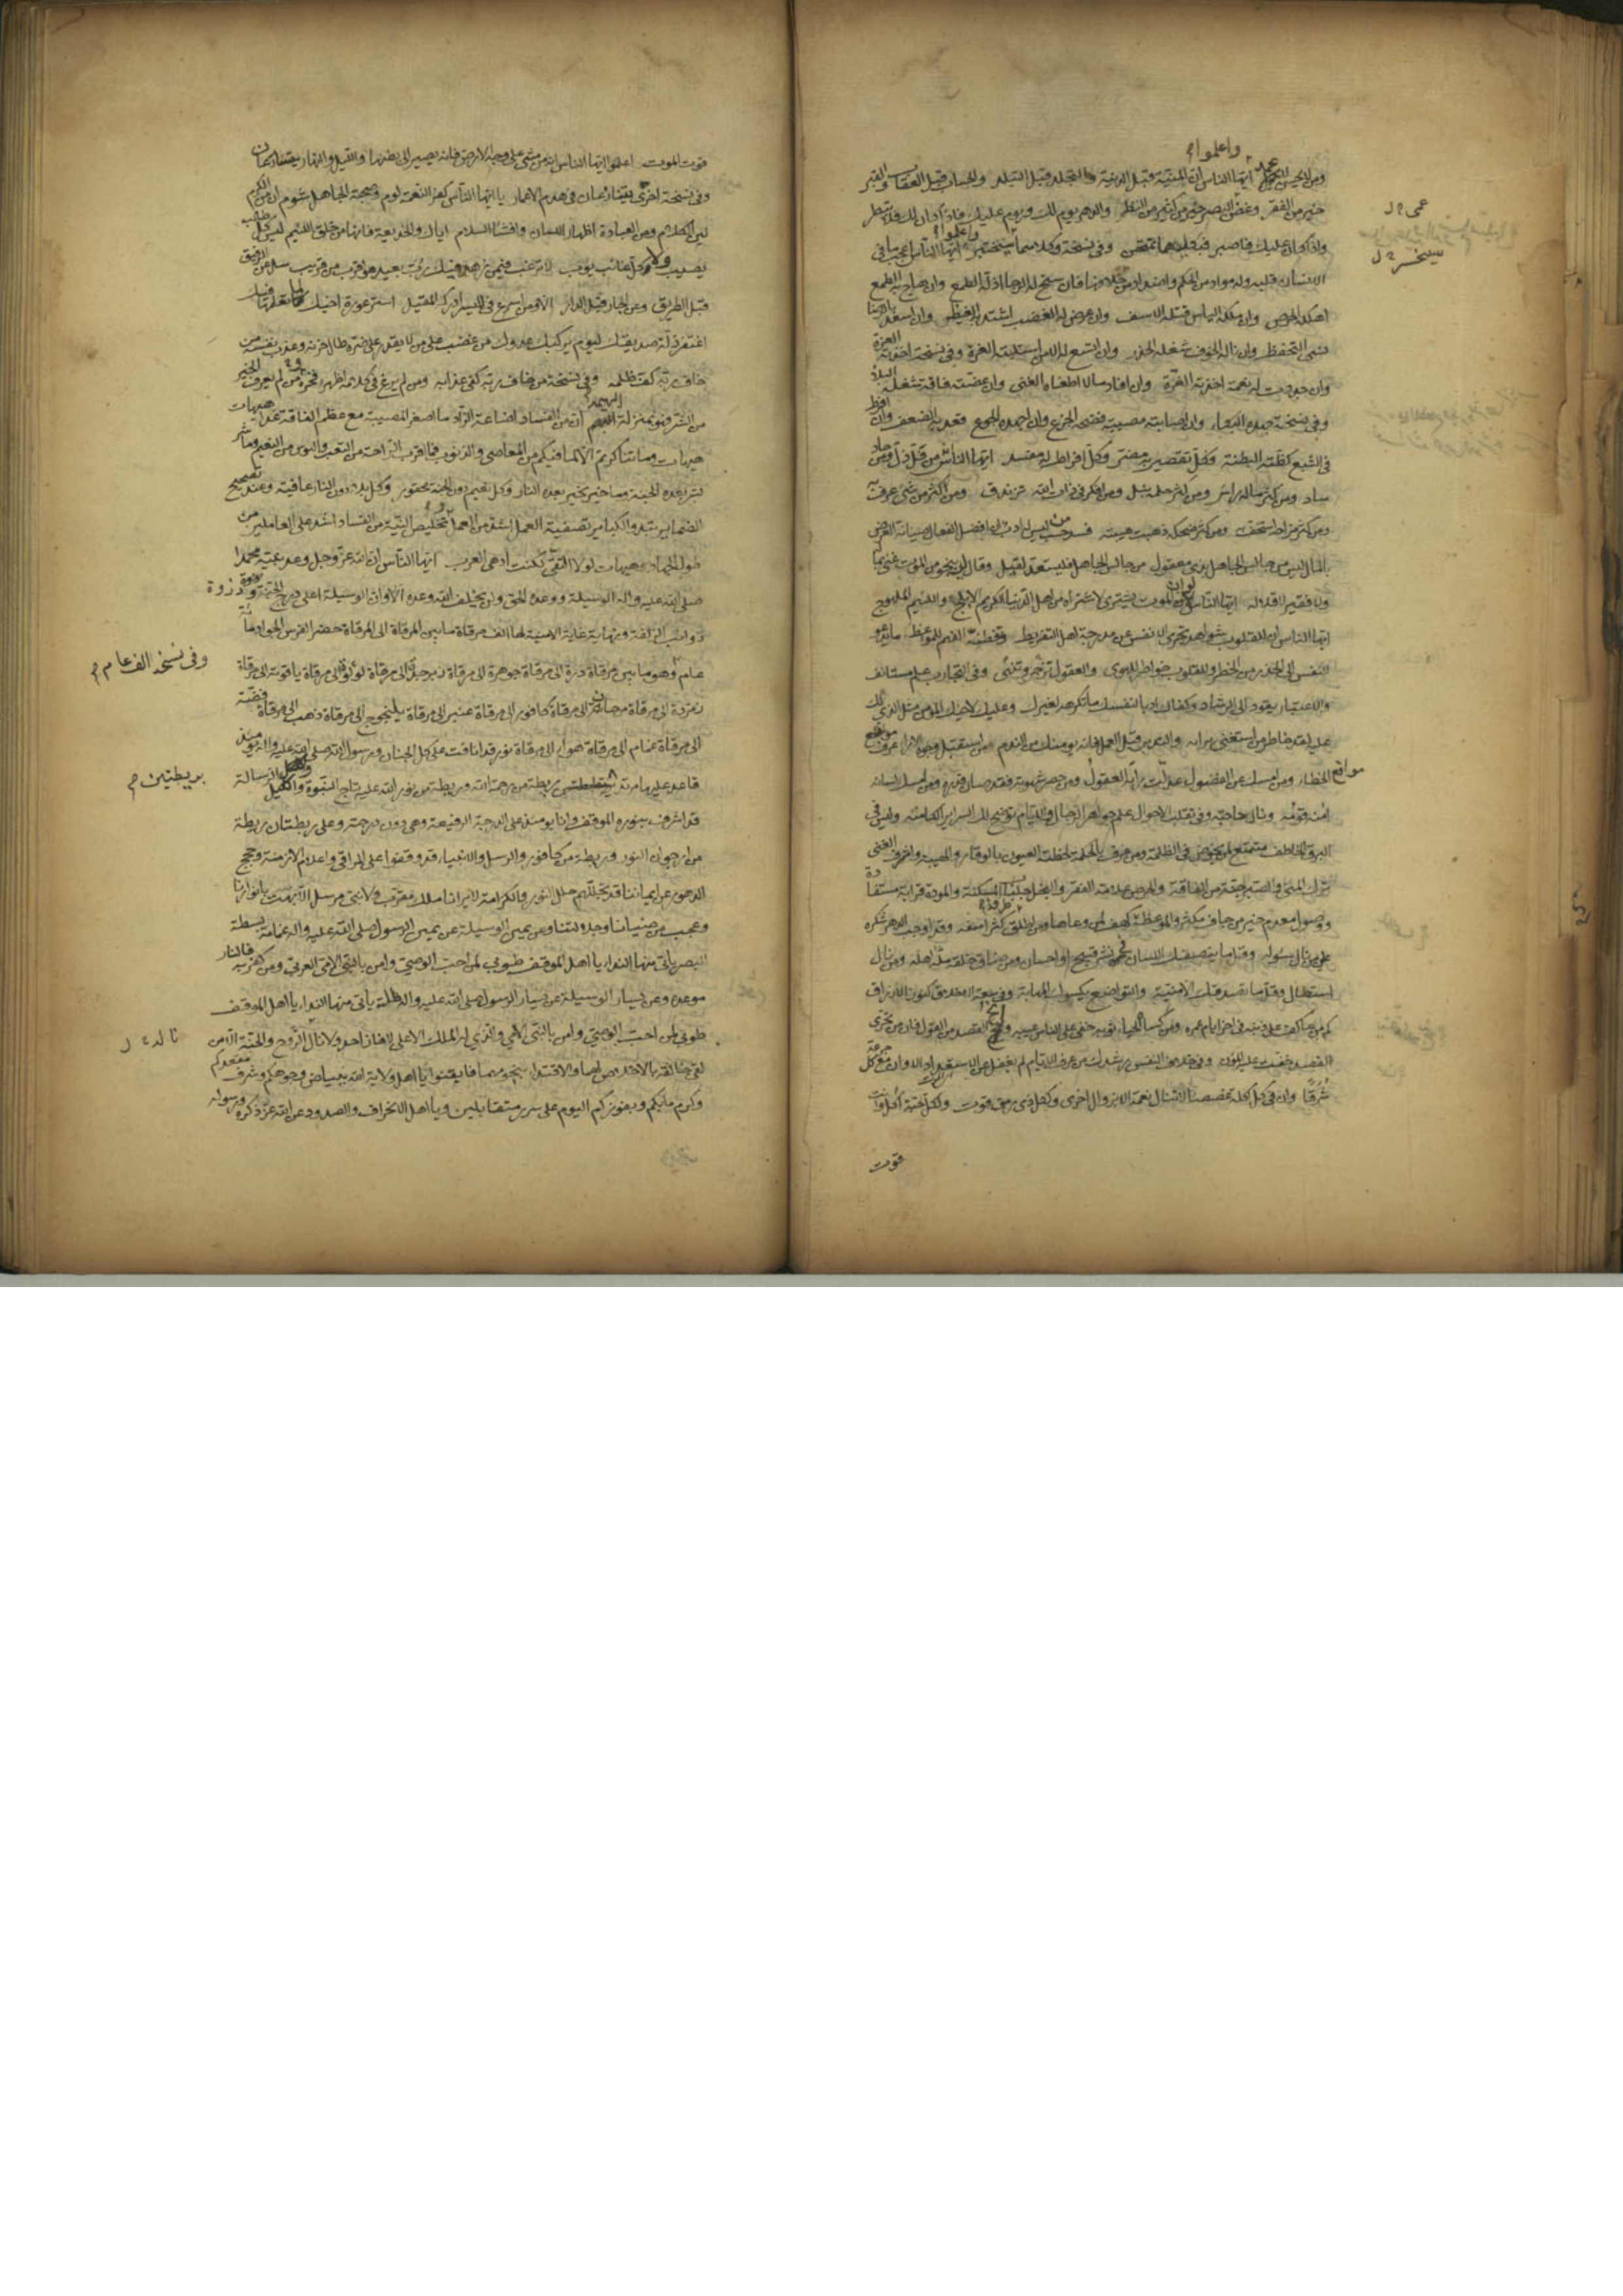 واعلموا
ايها الناس ان المنية قبل الدنية والتجلد قبل التبلد والحساب قبل العقاب والقبر
خير من الفقر وغض البصر خير من كثير من النظر والدهر يوم لك ويوم عليك فاذا كان لك فلا تبطر
عمى
واذا كان عليك فاصبر فبكليهما تمتحن وفى نسخة وكلاهما سيختبر ايها الناس اعجب ما فى
سيخسر
الانسان قلبه وله مواد من الحكمة واضداد من خلافها فان سنح له الرجا اذله الطمع وان هاج به الطمع
اهلكه الحرص وان ملكه الياس قتله الاسف وان عرض له الغضب اشتد به الغيظ وان اسعد بالرضا
نسى التحفظ وان ناله الخوف شغله الحذر وان اتسع له الامن استلبته الغرة وفى نسخة اخذته العزة
وان جددت له نعمة اخذته العزة وان افاد مالا اطغاه الغنى وان عضته فاقة شغله البلاء
وفى نسخة جهده البكاء وان اصابته مصيبة فضحه الجزع وان اجهده الجوع قعد به الضعف وان افرط
فى الشبع كظته البطنة فكل تقصير به مضر وكل افراط له مفسد ايها الناس من قل ذل ومن جاد
ساد ومن كثر ماله راس ومن كثر حلمه نبل ومن افكر فى ذات الله تزندق ومن اكثر من شئ عرف به
ومن كثر مزاحه استخف به ومن كثر ضحكه ذهبت هيبته فسد حسب من ليس له ادب ان افضل الفعال صيانة العرض
بالمال ليس من جالس الجاهل بذى معقول من جالس الجاهل فليستعد لقيل وقال لن ينجو من الموت غنى بماله
ولا فقير لاقلاله ايها الناس لو ان الموت يشترى لاشتراه من اهل الدنيا الكريم الابلج واللئيم الملهوج
ايها الناس ان للقلوب شواهد تجرى الانفس عن مدرجة اهل التفريط وفطنة الفهم للمواعظ ما يدعو
النفس الى الحذر من الخطر وللقلوب خواطر للهوى والعقول تزجر وتنهى وفى التجارب علم مستانف
والاعتبار يقود الى الرشاد وكفاك ادبا لنفسك ما تكرهه لغيرك وعليك لاخيك المؤمن مثل الذى لك
عليه لقد خاطر من استغنى برايه والتدبر قبل العمل فانه يؤمنك من الندم ومن استقبل وجوه الاراء عرف مواقع
مواقع الخطاء ومن امسك عن الفضول عدلت رايه العقول ومن حصر شهوته فقد صان قدره ومن امسك لسانه
امنه قومه ونال حاجته وفى تقلب الاحوال علم جواهر الرجال والايام توضح لك السراير الكامنة وليس فى
البرق الخاطف مستمتع لمن يخوض فى الظلمة ومن عرف بالحكمة لحظته العيون بالوقار والهيبة واشرف الغنى
ترك المنى والصبر جنة من الفاقة والحرص علامة الفقر والبخل جلباب المسكنة والمودة قرابة مستفادة
ووصول معدم خير من جاف مكثر والموعظة كهف لمن وعاها ومن اطلق طرفه كثر اسفه وقد اوجب الدهر شكره
على من نال سؤله وقل ما ينصفك اللسان فى نشر قبيح او احسان ومن ضاق خلقه مله اهله ومن نال
استطال وقل ما تصدقك الامنية والتواضع يكسوك المهابة وفى سعة الاخلاق كنوز الارزاق
كم من عاكف على ذنبه فى اخر ايام عمره ومن كساه الحياء ثوبه خفى على الناس عيبه وانح القصد من القول فان من تحرى
القصد خفت عليه المؤن وفى خلاف النفس رشدك من عرف الايام لم يغفل عن الاستعداد الا وان مع كل جرعة
شرقا وان فى كل اكلة غصصا لا تنال نعمة الا بزوال اخرى ولكل ذى رمق قوت ولكل حبة اكل وانت
قوت
قوت الموت اعلموا ايها الناس انه من مشى على وجه الارض فانه يصير الى بطنها والليل والنهار يتنازعان
وفى نسخة اخرى يتسارعان فى هدم الاعمار يا ايها الناس كفر النعمة لوم وصحبة الجاهل شوم ان من الكرم
لين الكلام ومن العبادة اظهار اللسان وافشا السلام اياك والخديعة فانها من خلق اللئيم ليس كل طالب
يصيب ولا كل غائب يؤب لا ترغب فيمن زهد فيك رب بعيد هو اقرب من قريب سل عن الرفيق
قبل الطريق وعن الجار قبل الدار الا ومن اسرع فى المسير ادركه المقيل استر عورة اخيك كما تعلمها فيك
اغتفر زلة صديقك ليوم يركبك عدوك من غضب على من لا يقدر على ضره طال حزنه وعذب نفسه من
خاف ربه كف ظلمه وفى نسخة من خاف ربه كفى عذابه ومن لم يزغ فى كلامه اظهر فخره ومن لم يعرف الخير
من الشر فهو بمنزلة البهيمة ان من الفساد اضاعة الزاد ما اصغر المصيبة مع عظم الفاقة غدا هيهات
هيهات وما تناكرتم الا لما فيكم من المعاصى والذنوب فما اقرب الراحة من التعب والبؤس من النعيم وما شر
بشر بعده الجنة وما خير بخير بعده النار وكل نعيم دون الجنة محقور وكل بلاء دون النار عافية وعند تصحيح
الضماير تبدو الكباير تصفية العمل اشد من العمل وتخليص النية من الفساد اشد على العاملين من
طول الجهاد هيهات لولا التقى كنت ادهى العرب ايها الناس ان الله عز وجل وعد نبيه محمدا
صلى الله عليه واله الوسيلة ووعده الحق ولن يخلف الله وعده الا وان الوسيلة اعلى درج الجنة وذروة
ذوائب الزلفة ونهاية غاية الامنية لها الف مرقاة ما بين المرقاة الى المرقاة حضر الفرس الجواد مائة
وفى نسخة الف عام
عام وهو ما بين مرقاة درة الى مرقاة جوهرة الى مرقاة زبرجدة الى مرقاة لؤلؤة الى مرقاة ياقوتة الى مرقاة
زمردة الى مرقاة مرجانة الى مرقاة كافور الى مرقاة عنبر الى مرقاة يلنجوج الى مرقاة ذهب الى مرقاة فضة
الى مرقاة غمام الى مرقاة هواء الى مرقاة نور قد انافت على كل الجنان ورسول الله صلى الله عليه واله يومئذ
بريطتين
قاعد عليها مرتد بريطتين ريطة من رحمة الله وريطة من نور الله عليه تاج النبوة واكليل الرسالة
قد اشرف بنوره الموقف وانا يومئذ على الدرجة الرفيعة وهى دون درجته وعلى ريطتان ريطة
من ارجوان النور وريطة من كافور والرسل والانبياء قد وقفوا على المراقى واعلام الازمنة وحجج
الدهور عن ايماننا قد تجللهم حلل النور والكرامة لا يرانا ملك مقرب ولا نبى مرسل الا بهت بانوارنا
وعجب من ضيائنا وجلالتنا وعن يمين الوسيلة عن يمين الرسول صلى الله عليه واله غمامة بسطة
البصر ياتى منها النداء يا اهل الموقف طوبى لمن احب الوصى وامن بالنبى الامى العربى ومن كفر به فالنار
موعده وعن يسار الوسيلة عن يسار الرسول صلى الله عليه واله ظلمة ياتى منها النداء يا اهل الموقف
طوبى لمن احب الوصى وامن بالنبى الامى والذى له الملك الاعلى لا فاز احد ولا نال الروح والجنة الا من
لقى خالقه بالاخلاص لهما والاقتداء بنجومهما فايقنوا يا اهل ولاية الله ببياض وجوهكم وشرف مقعدكم
وكرم مابكم وبفوزكم اليوم على سرر متقابلين ويا اهل الانحراف والصدود عن الله عز ذكره ورسوله